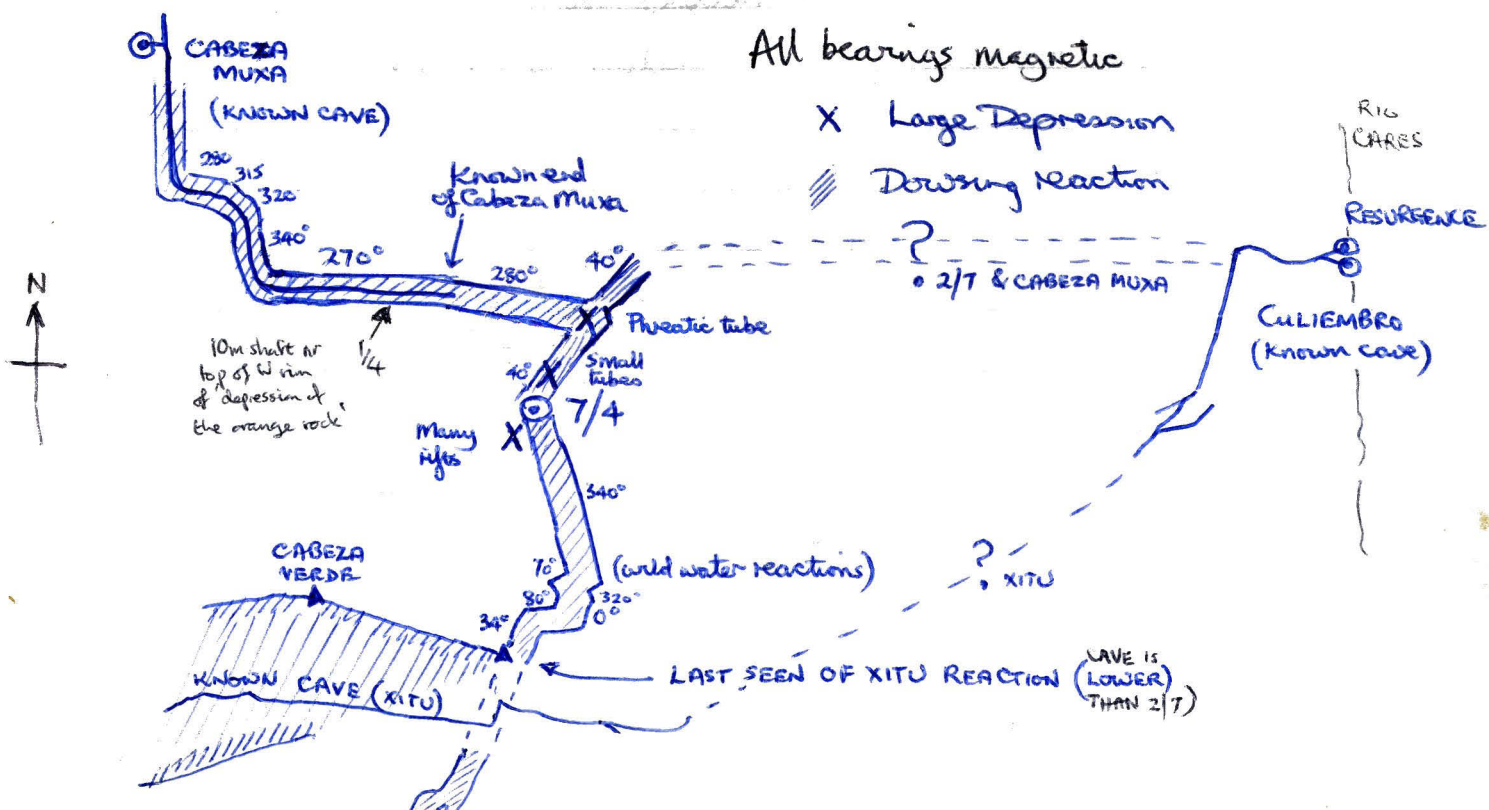 All bearings magnetic
X Large Depression
Dowsing reaction
CABEZA
MUXA
(KNOWN CAVE)
280
315
320
340°
270°
Known end
of Cabeza Muxa
280°
40°
?
• 2/7 & CABEZA MUXA
RIO
CARES
RESURGENCE
CULIEMBRO
(Known cave)
N
10m shaft nr
top of W rim
of 'depression of
the orange rock'
1/4
Phreatic tube
Small
tubes
40°
7/4
Many
rifts
340°
CABEZA
VERDE
70°
(wild water reactions)
80°
320°
0°
34°
? XITU
KNOWN CAVE (XITU)
LAST SEEN OF XITU REACTION (CAVE IS
LOWER
THAN 2/7)